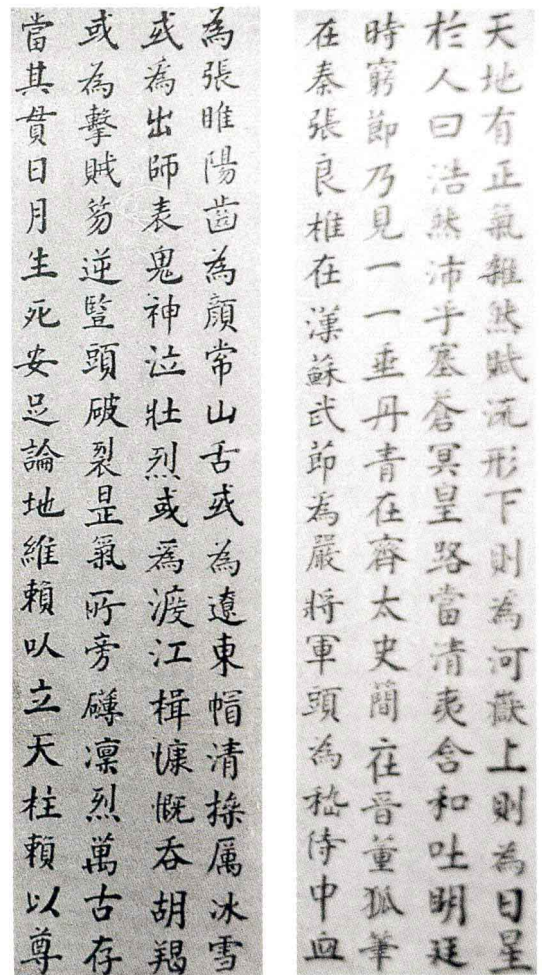 天地有正氣雜然賦流形下則為河嶽上則為日星
於人曰浩然沛乎塞蒼冥皇路當清夷含和吐明廷
時窮節乃見一一垂丹青在齊太史簡在晉董狐筆
在秦張良椎在漢蘇武節為嚴將軍頭為嵇侍中血
為張睢陽齒為顏常山舌或為遼東帽清操厲冰雪
或為出師表鬼神泣壯烈或為渡江楫慷慨吞胡羯
或為擊賊笏逆豎頭破裂是氣所旁礴凜烈萬古存
當其貫日月生死安足論地維賴以立天柱賴以尊